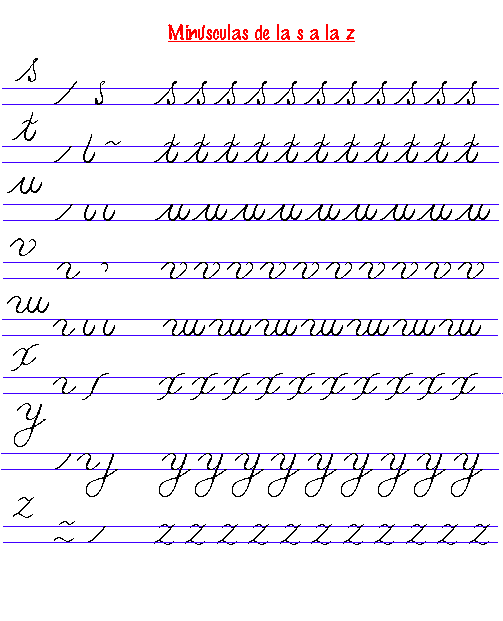 Minúsculas de la s a la z
s
s s s s s s s s s s s
t
t t t t t t t t t t t
u
u u u u u u u u u u
v
v v v v v v v v v v
w
w w w w w w w
x
x x x x x x x x x x
y
y y y y y y y y y
z
z z z z z z z z z z z